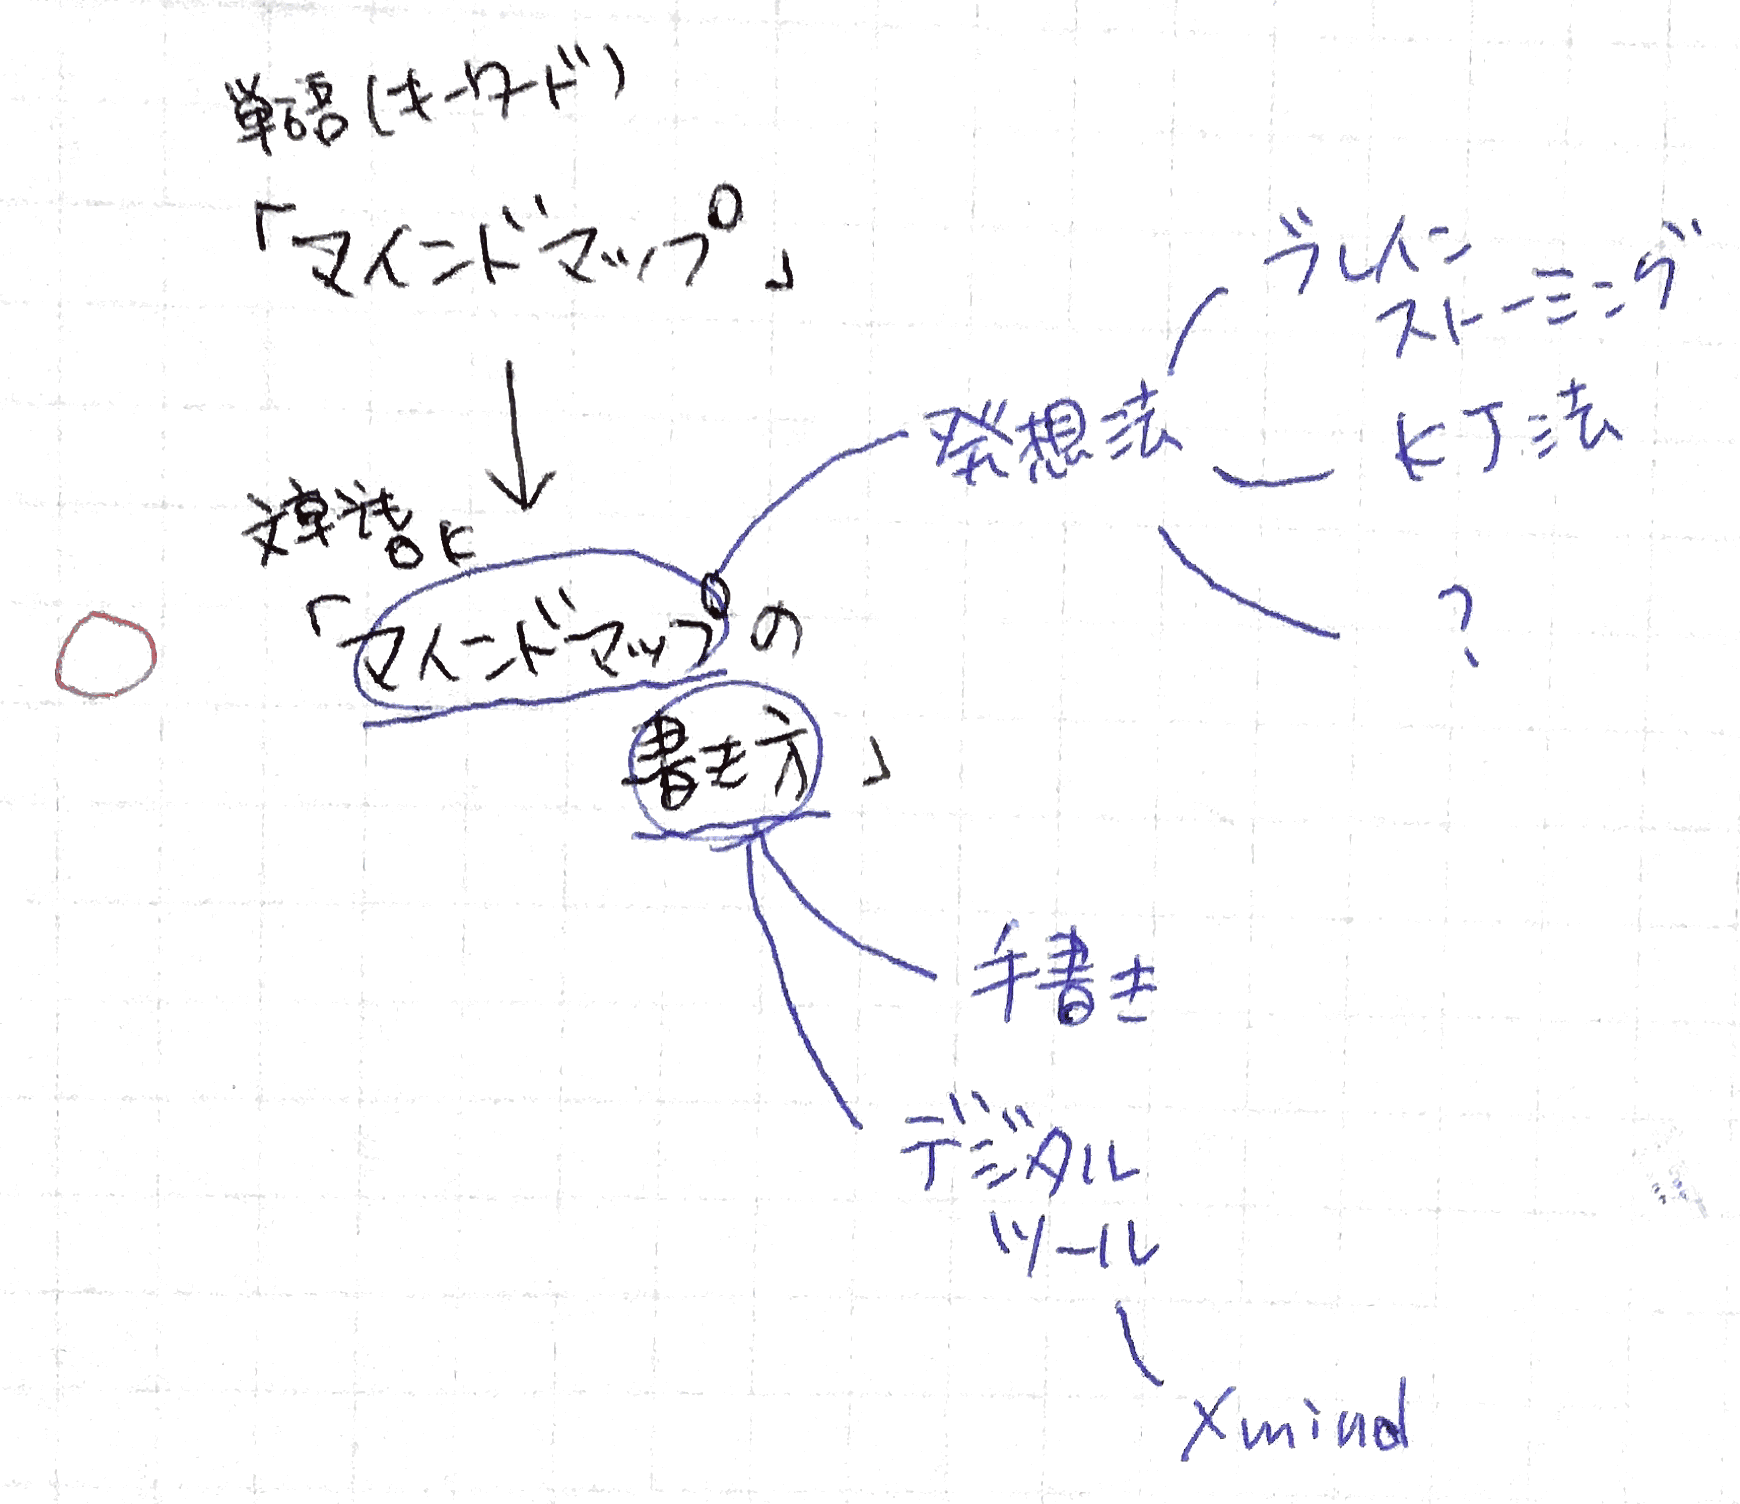 単語(キーワード)
「マインドマップ」
文章でもOK
「マインドマップの
書き方」
発想法
ブレイン
ストーミング
KJ法
?
手書き
デジタル
ツール
Xmind